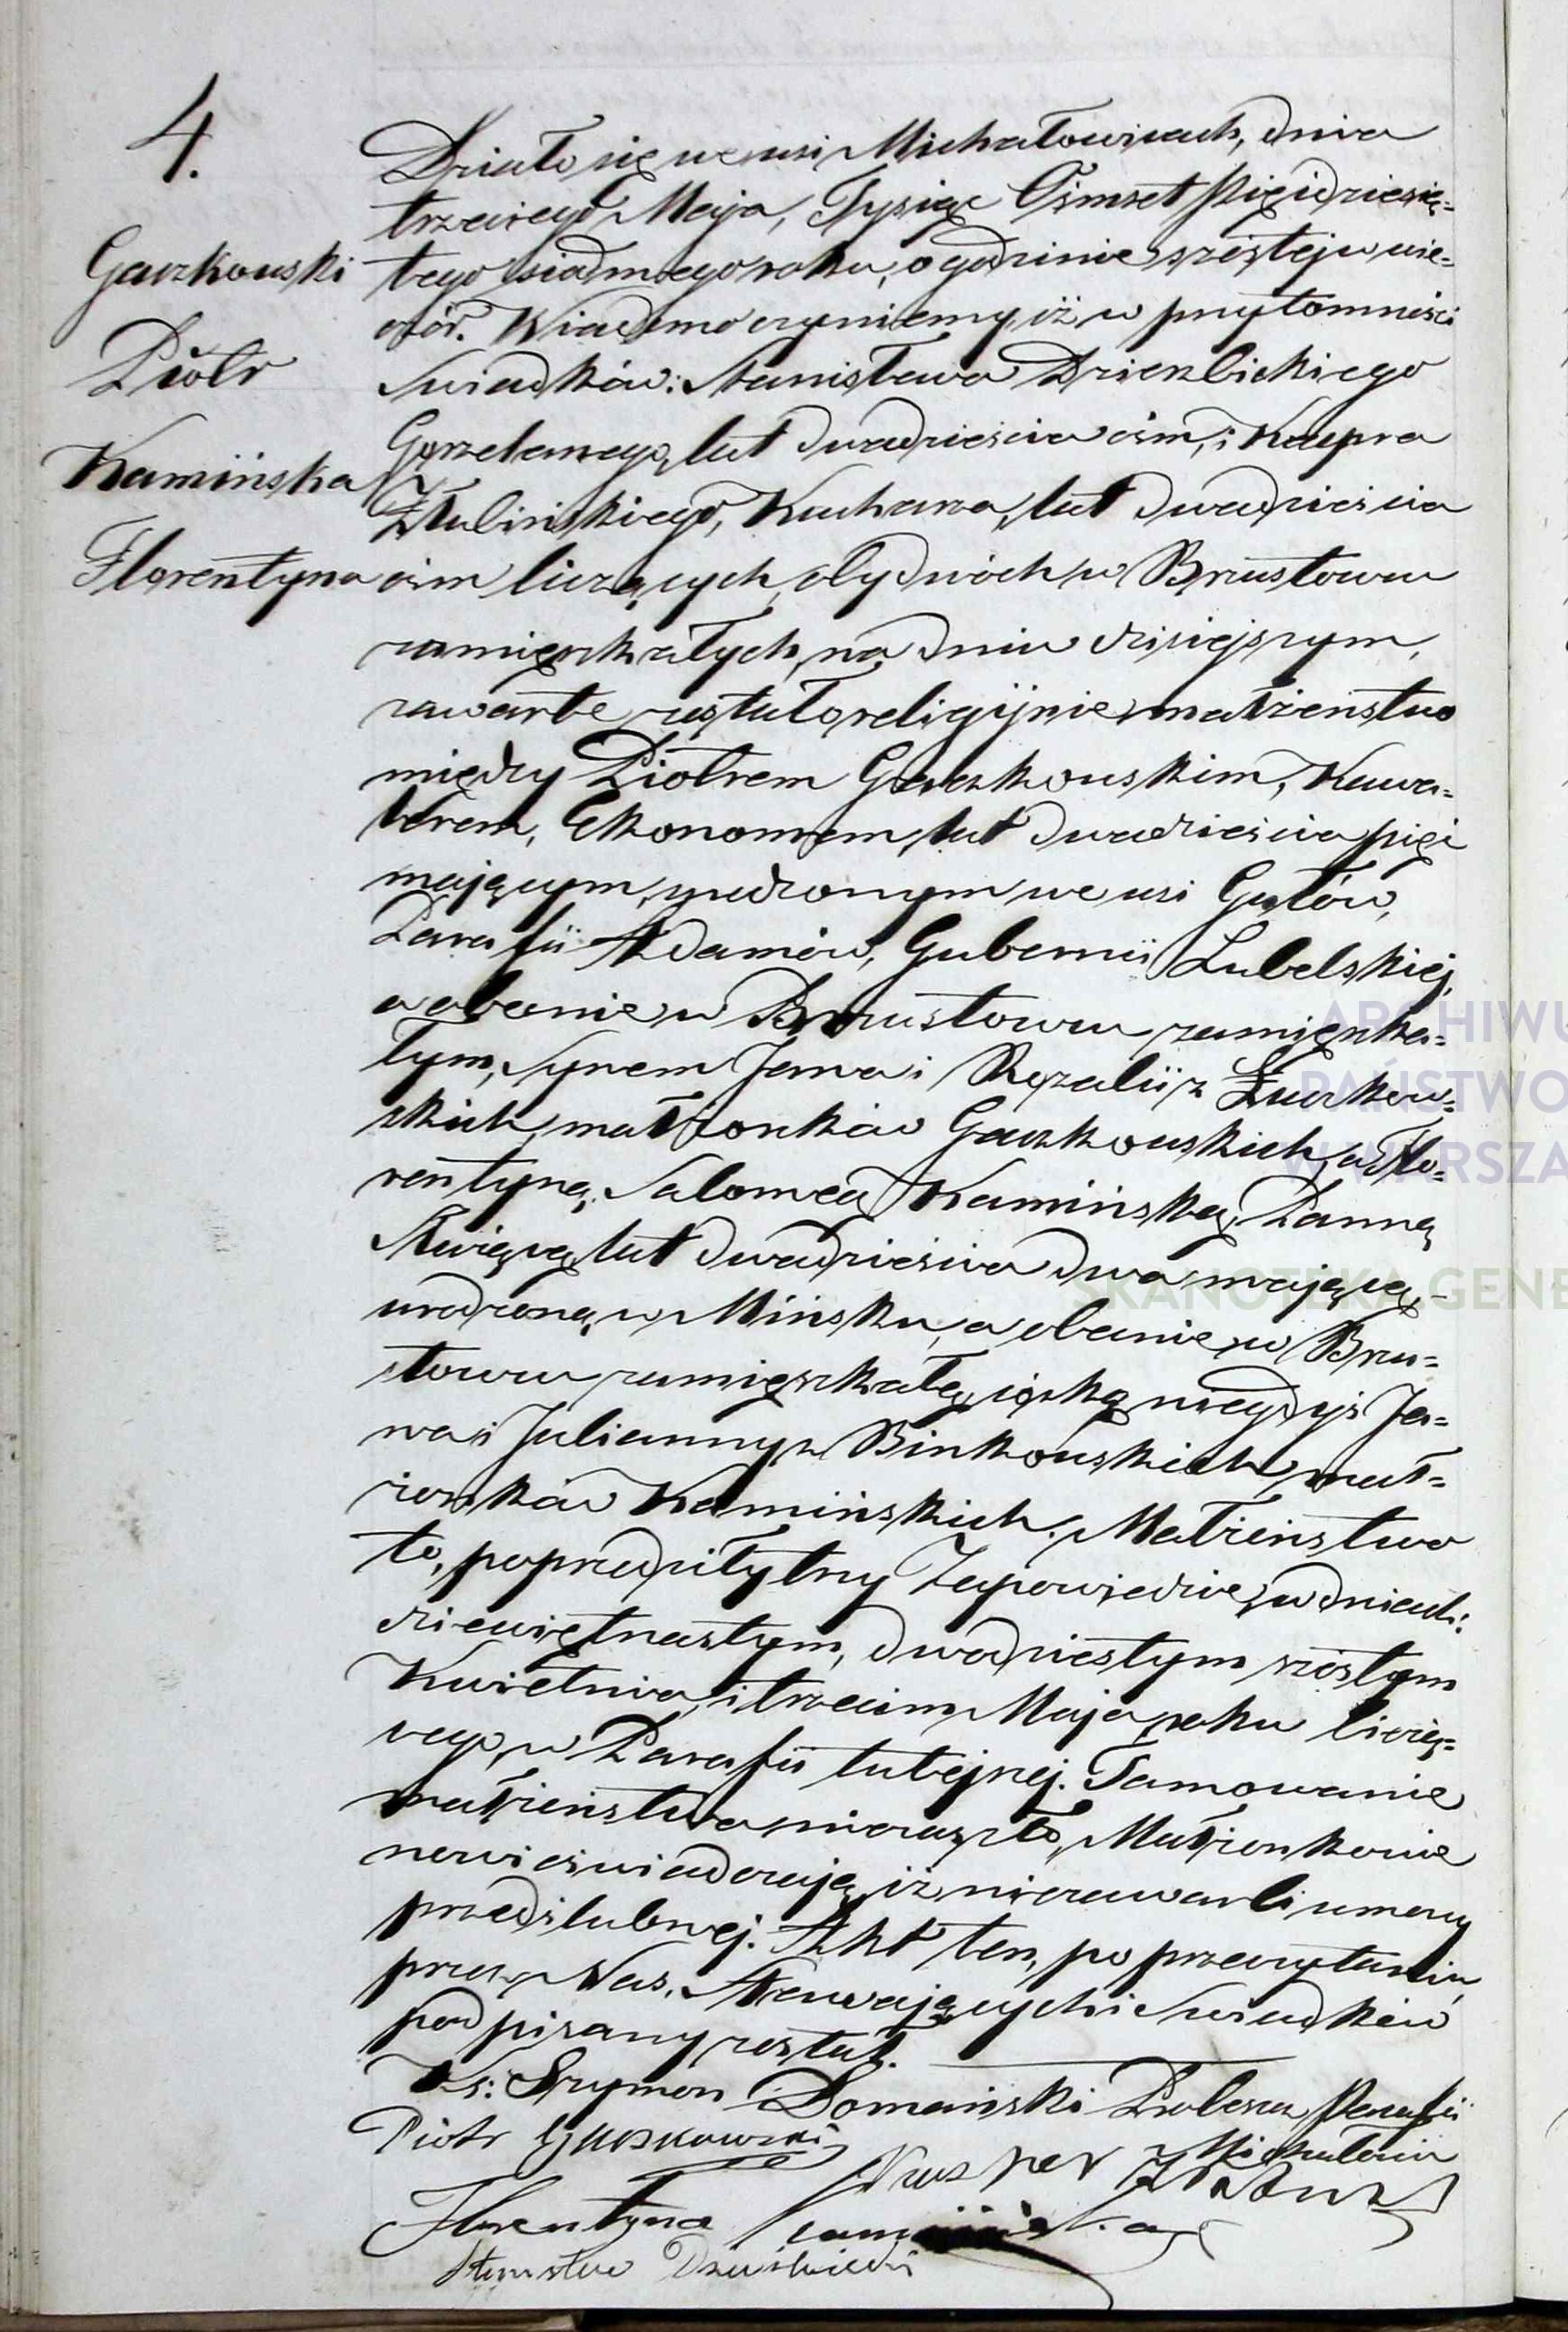 4.
Gaczkowski
Piotr
Kamińska
Florentyna
Działo się we wsi Michałowicach, dnia
trzeciego Maja, Tysiąc Ośmset pięćdziesią=
tego siódmego roku, o godzinie szóstej w wie=
czór. Wiadomo czyniemy, iż w przytomności
Świadków: Stanisława
Gorzelanego, lat dwadzieścia ośm, i Kaspra
Kucharza, lat dwadzieścia
ośm liczących, obydwóch w Brzustowie
zamięszkałych, na dniu dzisiejszym,
zawarte zostało religijnie małżeństwo
między Piotrem Gaczkowskim, Kawa=
lerem, Ekonomem, lat dwadzieścia pięć
mającym, urodzonym we wsi Gułów,
Parafii Adamów, Gubernii Lubelskiéj,
a obecnie w Brzustowie zamięszka=
łym, Synem Jana i Rozalii z
skich, małżonków Gaczkowskich, a Flo=
rentyną Salomeą Kamińską, Panną
Służącą, lat dwadzieścia dwa mającą,
urodzoną w Mińsku, a obecnie w Brzu=
stowie zamięszkałą, córką niegdyś Ja=
na i Julianny z Binkowskich, mał=
żonków Kamińskich. Małżeństwo
to, poprzedziły trzy Zapowiedzie, w dniach:
dziewiętnastym, dwudziestym szóstym
Kwietnia, i trzecim Maja, roku bieżą=
cego, w Parafii tutejszej. Tamowanie
małżeństwa nie zaszło, Małżonkowie
nowi oświadczają, iż nie zawarli umowy
przedślubnej. Akt ten, po przeczytaniu,
przez Nas, Stawających i Świadków
podpisany został.
Ks: Szymon Domański Proboszcz Parafii
Piotr Gaczkowski
Kasper
Florentyna Kamińska
Stanisław
ARCHIWU
PAŃSTWO
W WARSZA
SKANOTEKA GENE